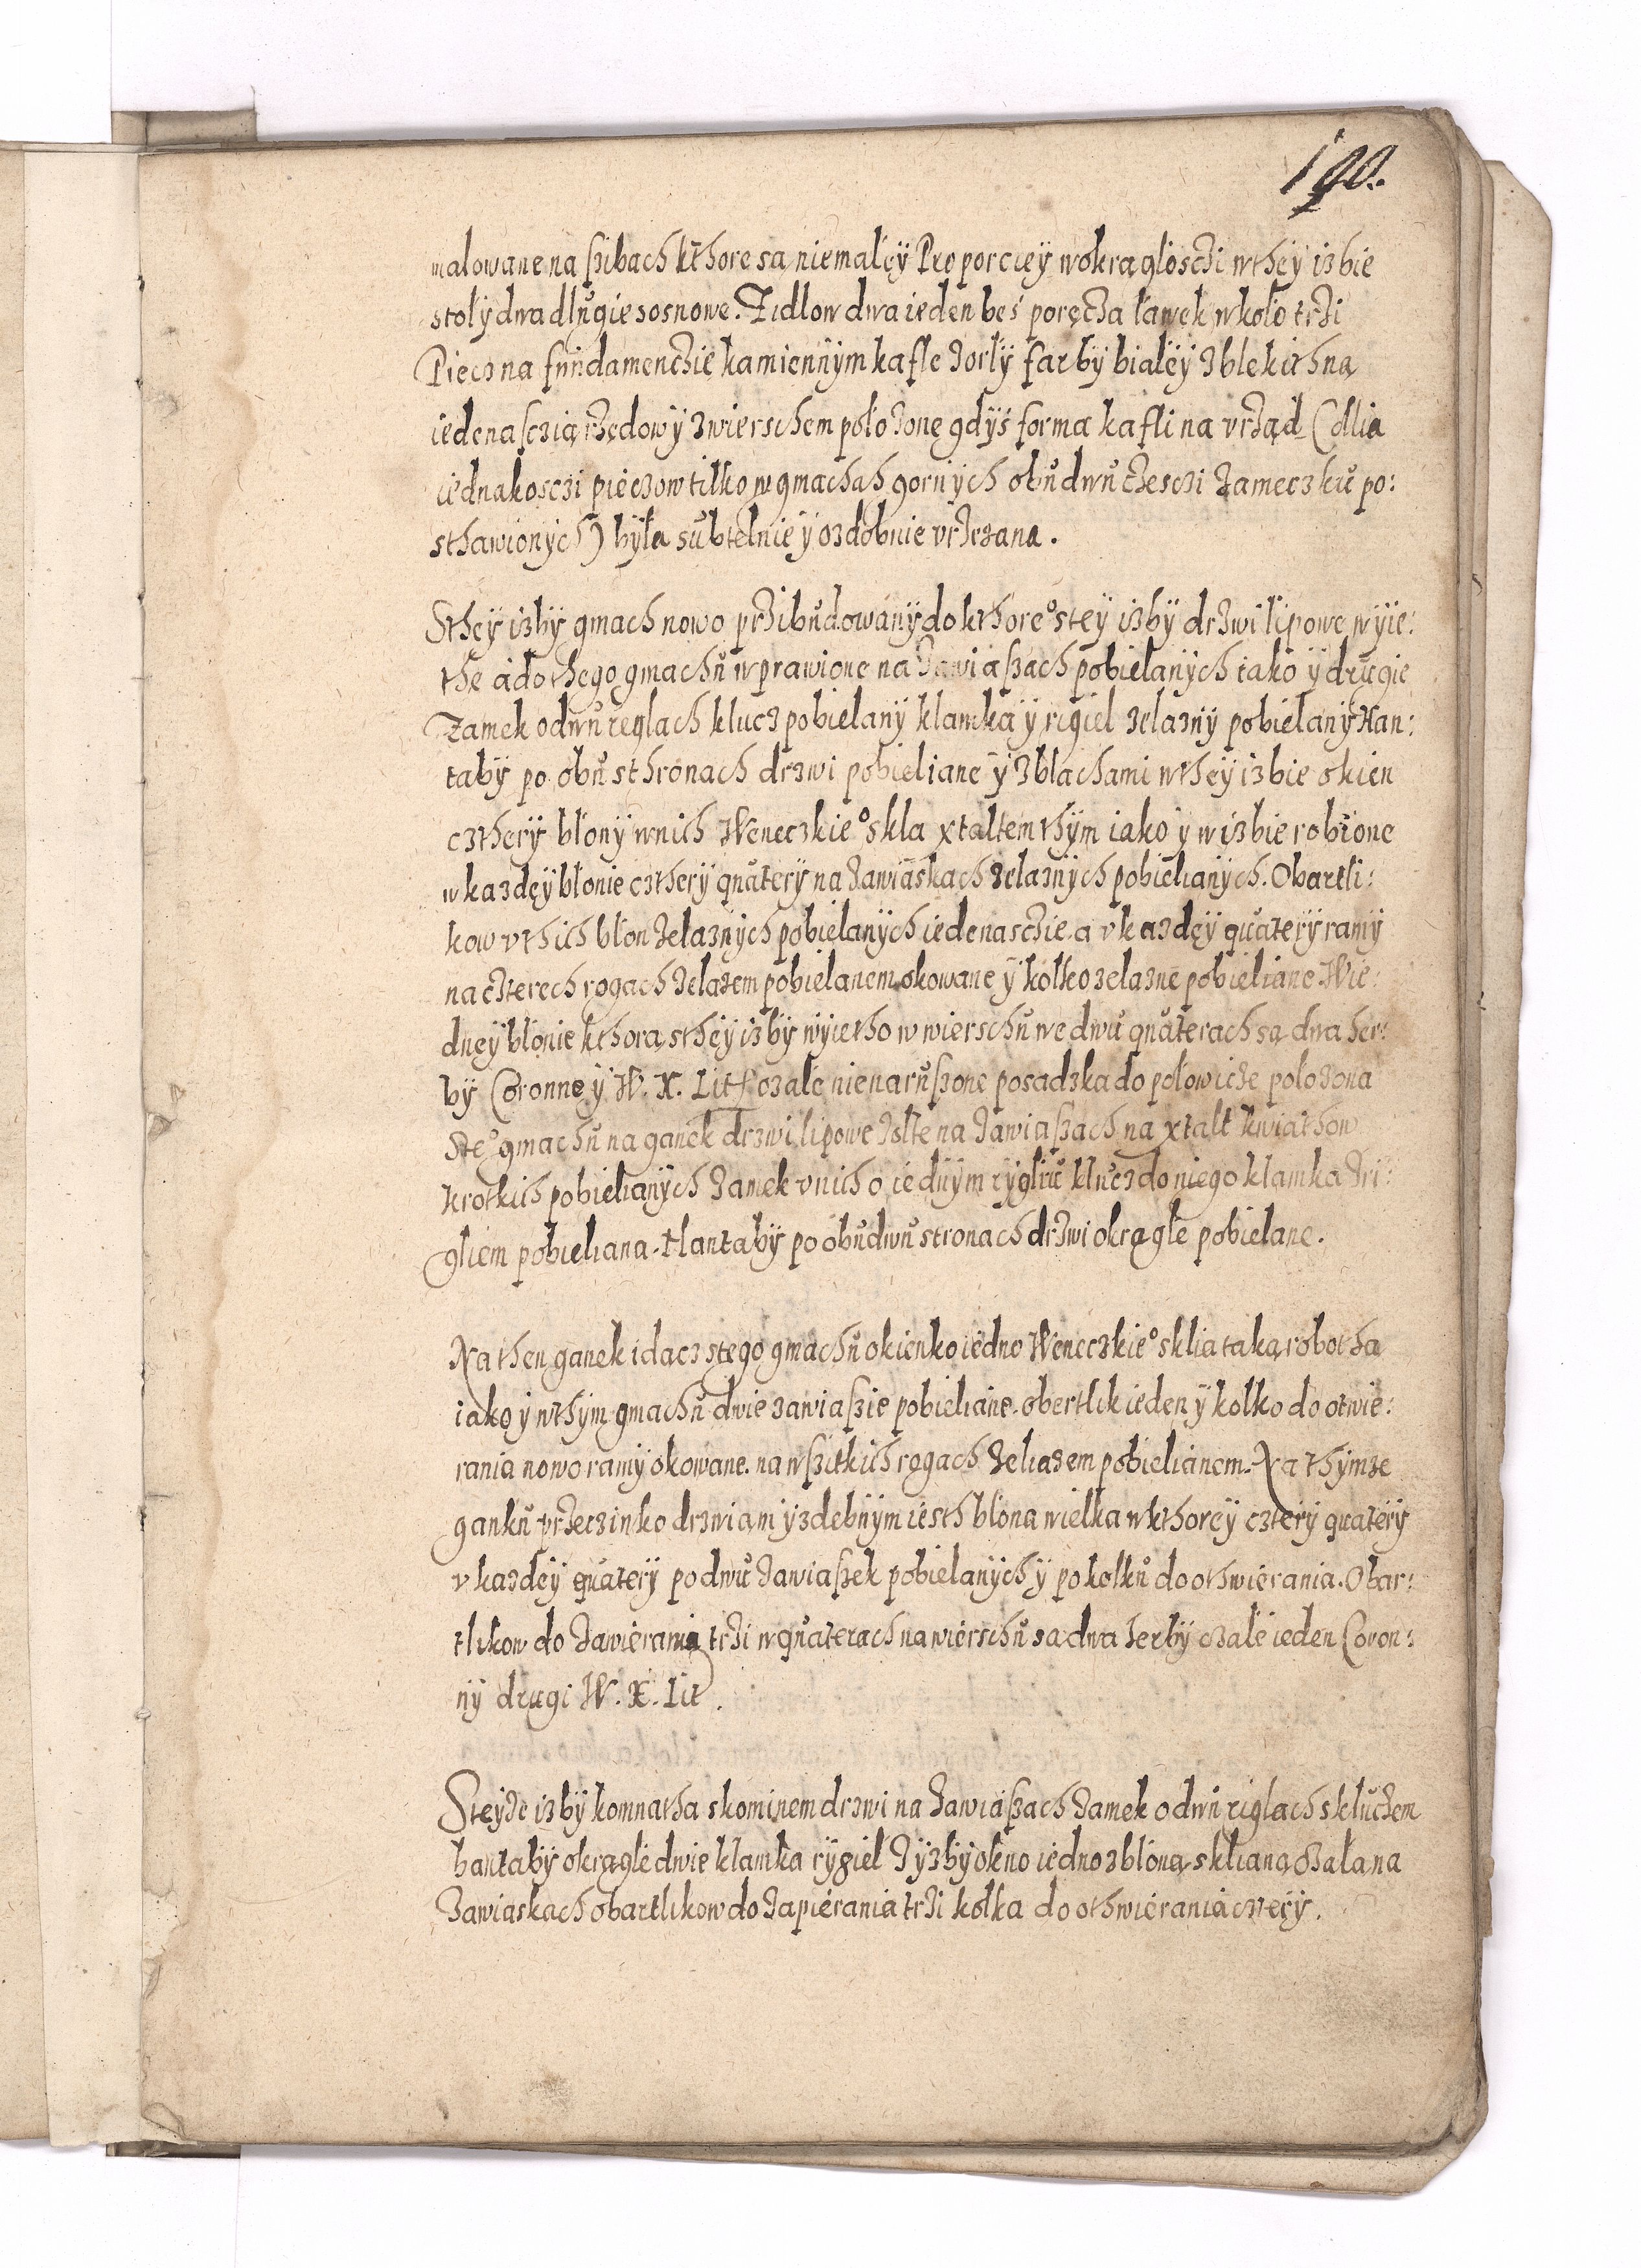 190.
malowane na szibach kthore sa niemalęÿ Proporcieÿ w okrąglosczi w theÿ izbie
stolÿ dwa dlŭgie sosnowe. Zidlow dwa ieden bes poręcza lawek wkolo trzi
Piecz na fŭndamenczie kamiennÿm kafle zorlÿ farbÿ bialeÿ zblekithną
iedenasczią rzędow ÿ zwierschem polozonę gdÿs forma kafli na vrząd (dlia
iednakosczi pieczow tilko w gmachach gornÿch obŭdwŭ czesczi zameczkŭ po:
sthawionÿch) bÿla sŭbtelnie ÿ ozdobnie vrzezana.
Stheÿ izbÿ gmach nowo przibŭdowanÿ do kthoreº steÿ izbÿ drzwi lipowe wÿie:
the a do thego gmachŭ wprawione na zawiaszach pobielanÿch iako ÿ drugie
Zamek o dwŭ reglach klucz pobielanÿ klamka ÿ rigiel zelaznÿ pobielanÿ Han:
tabÿ po obŭ sthronach drzwi pobieliane ÿ zblachami w theÿ izbie okien
cztherÿ blonÿ w nich Weneczkieº skla xtaltem thÿm iako ÿ w izbie robione
w kazdęÿ blonie cztherÿ qŭaterÿ na zawiaskach zelaznÿch pobielianÿch. Obartli:
kow v thich blon zelaznÿch pobielanÿch iedenasczie a v kazdęÿ qŭaterÿ ramÿ
na czterech rogach zelazem pobielanem okowane ÿ kolko zelazne pobieliane. Wie:
dneÿ blonie kthorą stheÿ izbÿ wÿietho w wierschŭ we dwŭ qŭaterach są dwa her:
bÿ Coronne ÿ W. X. Litt czale nienarŭszone posadzka do polowicze polozona
Steº gmachŭ na ganek drzwi lipowe zolte na zawiaszach na xtalt kwiathow
krotkich pobielianÿch zamek v nich o iednÿm rÿgliŭ klŭcz do niego klamka zri:
gliem pobieliana. Hantabÿ po obŭdwŭ stronach drzwi okrągle pobielane.
Na then ganek idacz stego gmachŭ okienko iedno Weneczkieº sklia taką robothą
iako ÿ w thÿm gmachŭ dwie zawiaszie pobieliane. obertlik ieden ÿ kolko do otwie:
rania nowo ramÿ okowane. na wszitkich rogach zeliazem pobielianem. Na thÿmze
gankŭ przecziwko drzwiam ÿzdebnÿm iesth blona wielka w kthoreÿ czterÿ quaterÿ
v kazdeÿ qŭaterÿ po dwŭ zawiaszek pobielanÿch ÿ po kolkŭ do othwierania. Obar:
tlikow do zawierania trzi w qŭaterach na wierschŭ sa dwa herbÿ czale ieden Coron:
nÿ drugi W. X. Lit.
Steÿze izbÿ komnatha skominem drzwi na zawiaszach zamek o dwŭ riglach skluczem
hantabÿ okrągle dwie klamka rÿgiel z ÿzbÿ okno iedno zbloną sklianą czala na
zawiaskach obartlikow do zapierania trzi kolka do othwierania czterÿ.